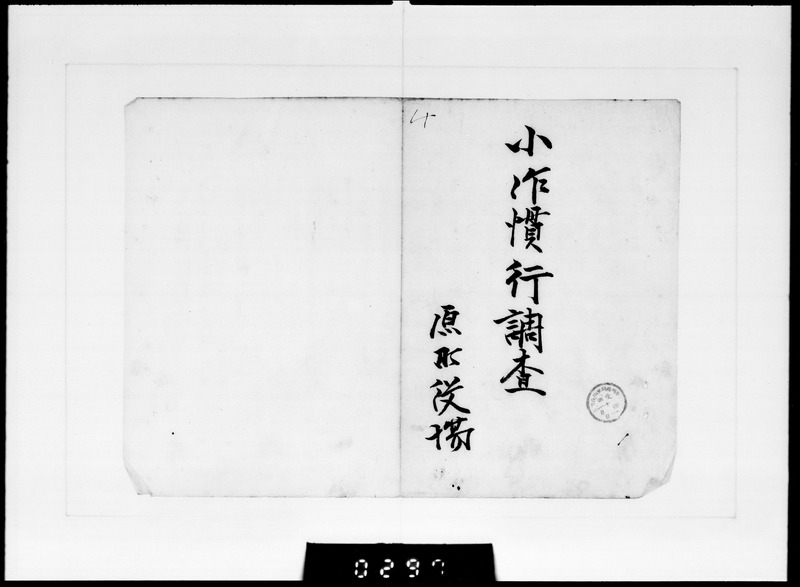 小作慣行調査
原 役場
4
0297